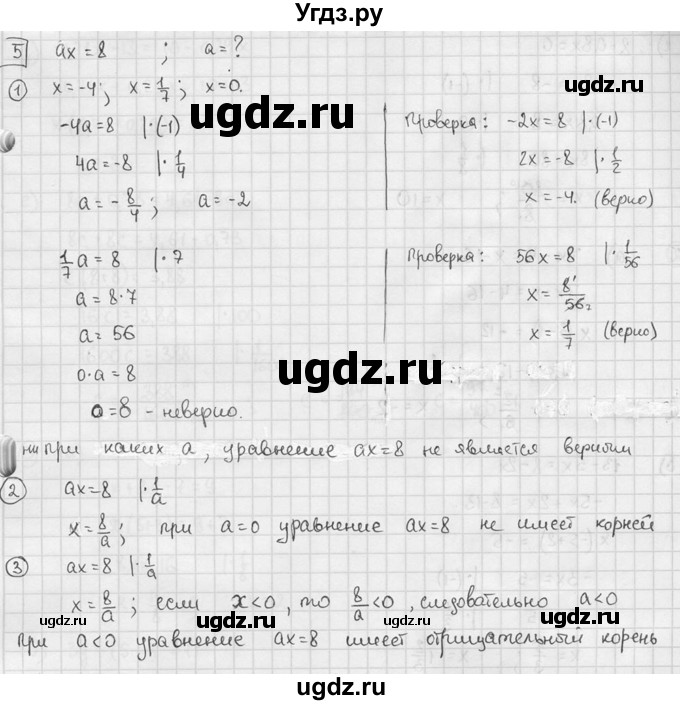 Угдз.ру
5 ax = 8 ; a = ?
① x = -4; x = 1/7; x = 0.
-4a = 8 |·(-1)
4a = -8 |·1/4
a = -8/4; a = -2
Проверка: -2x = 8 |·(-1)
2x = -8 |·1/2
x = -4. (верно)
1/7 a = 8 |·7
a = 8·7
a = 56
Проверка: 56x = 8 |·1/56
x = 8¹/56₂
x = 1/7 (верно)
0·a = 8
0 = 8 - неверно.
ни при каких a, уравнение ax = 8 не является верным
② ax = 8 |·1/a
x = 8/a; при a = 0 уравнение ax = 8 не имеет корней
③ ax = 8 |·1/a
x = 8/a; если x < 0, то 8/a < 0, следовательно a < 0
При a < 0 уравнение ax = 8 имеет отрицательный корень
ugdz.ru
ugdz.ru
ugdz.ru
ugdz.ru
ugdz.ru
ugdz.ru
ugdz.ru
ugdz.ru